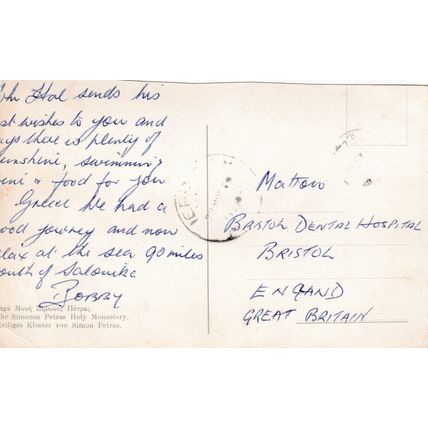 ohn Hoe sends his
st wishes to you and
ays there is plenty of
unshine, swimming
ine & food for you
Greece We had a
ood journey and now
elax at the sea 90 miles
outh of Salonika
BOBBY
ερὰ Μονὴ Σίμωνος Πέτρας
he Simonos Petras Holy Monastery.
eiliges Kloster von Simon Petras.
Matron
BRISTOL DENTAL HOSPITAL
BRISTOL
ENGAND
GREAT BRITAIN